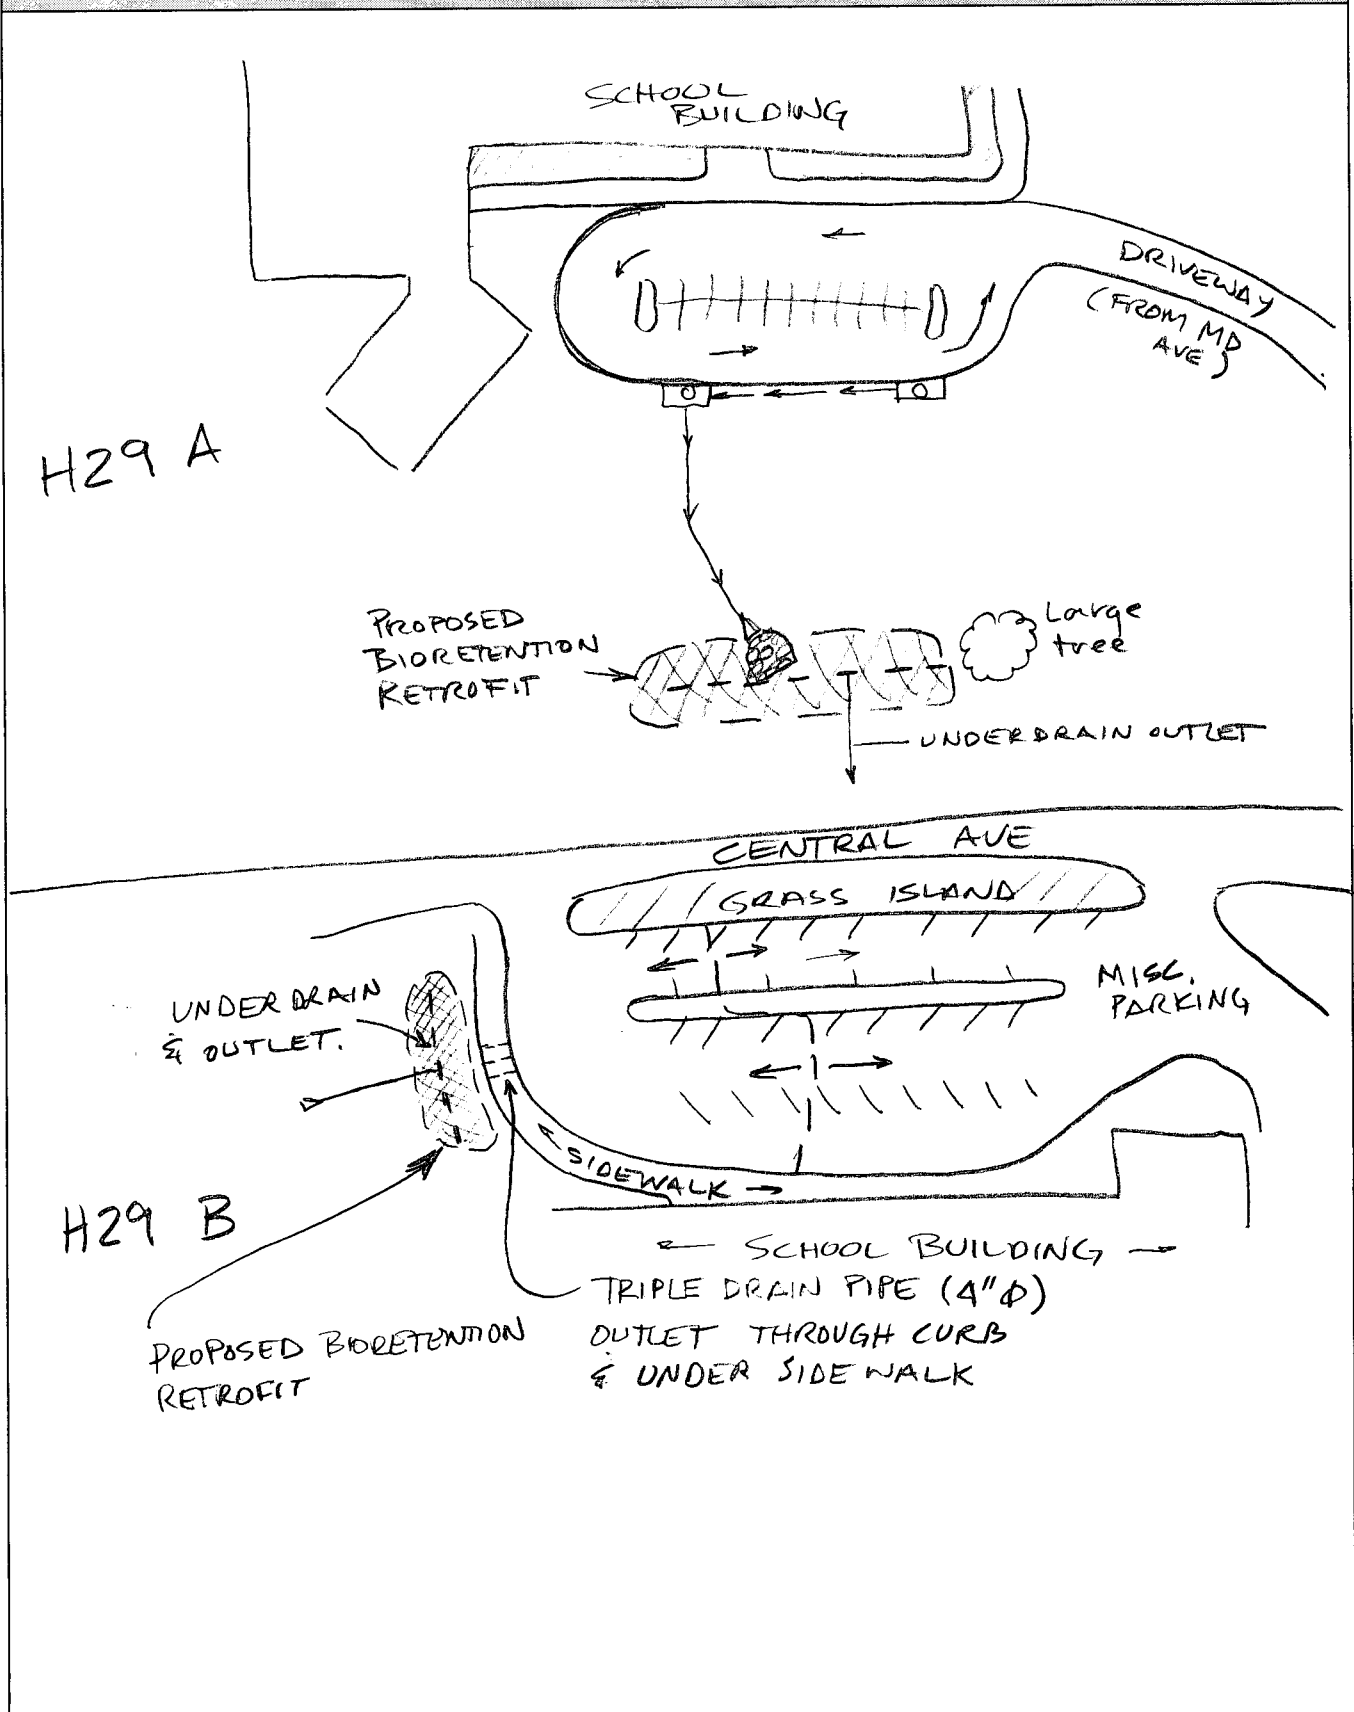 SCHOOL
BUILDING
DRIVEWAY
(FROM MD
AVE)
H29 A
PROPOSED
BIORETENTION
RETROFIT
Large
tree
UNDERDRAIN OUTLET
CENTRAL AVE
GRASS ISLAND
MISC.
PARKING
UNDERDRAIN
& OUTLET.
SIDEWALK
H29 B
SCHOOL BUILDING
TRIPLE DRAIN PIPE (4"Φ)
OUTLET THROUGH CURB
& UNDER SIDEWALK
PROPOSED BIORETENTION
RETROFIT